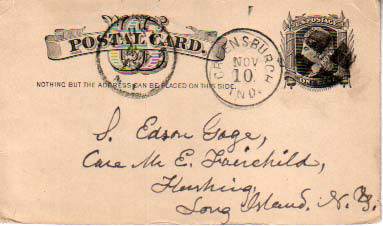 U.S. POSTAGE
POSTAL CARD.
GREENSBURGH
NOV
10
IND.
NOTHING BUT THE ADDRESS CAN BE PLACED ON THIS SIDE.
S. Edson Gage,
Care Mr E. Fairchild,
Flushing,
Long Island. N.Y.